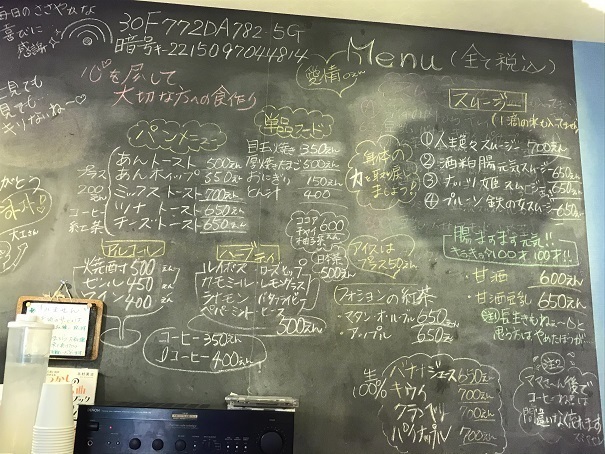 毎日のささやかな
喜びに
感謝
30F772DA782-5G
暗号キー2215097044814
Menu (全て税込)
愛情0えん
心を尽して
大切な方への食作り
一見でも
見でも
キリないね〜♡
パンメニュー
あんトースト 500えん
あんホイップ 550えん
ミックストースト 700えん
ツナトースト 650えん
チーズトースト 650えん
プラス
200えん
コーヒー
紅茶
単品フード
目玉焼き 350えん
厚焼たまご 500えん
おにぎり 150えん
とん汁 400
身体の
力を取り戻し
ましょう!
スムージー
①人生色々スムージー 700えん
②酒粕腸元気スムージー 650えん
③ナッツ姫スムージー 650えん
④プルーン鉄の女スムージー 650えん
腸ますます元気!!
100才!!
・甘酒 600えん
・甘酒豆乳 650えん
長生きもねぇ〜と
思う方はやめたほうが…
注2
ママさん後で
コーヒー
間違いなく
アルコール
焼酎 500えん
ビール 450えん
ワイン 400えん
ハーブティ
ルイボス
カモミール
ラベンダー
ペパーミント
ローズヒップ
レモングラス
500えん
ココア
チャイ
ゆず茶
600えん
日本茶
500えん
アイスは
プラス50えん
フォションの紅茶
・マタンオ・ルブル 650えん
・アップル 650えん
コーヒー 350えん
Iコーヒー 400えん
生
100%
バナナジュース 650えん
キウイ 700えん
クランベリー 700えん
パイナップル 700えん